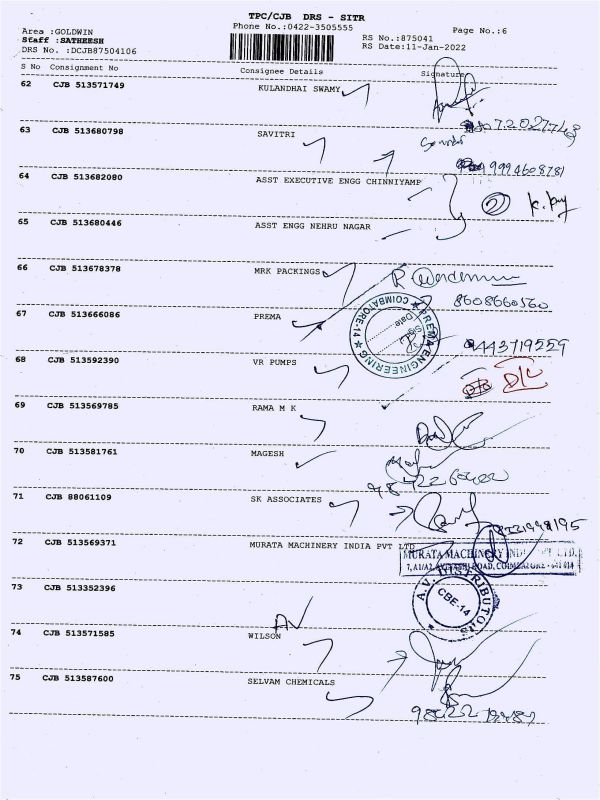 TPC/CJB DRS - SITR
Phone No.:0422-3505555
Area :GOLDWIN
Staff :SATHEESH
DRS No. :DCJB87504106
RS No.:875041
RS Date:11-Jan-2022
Page No.:6
S No Consignment No Consignee Details Signature
62 CJB 513571749 KULANDHAI SWAMY
63 CJB 513680798 SAVITRI
64 CJB 513682080 ASST EXECUTIVE ENGG CHINNIYAMP
65 CJB 513680446 ASST ENGG NEHRU NAGAR
66 CJB 513678378 MRK PACKINGS
8608660560
67 CJB 513666086 PREMA
PREMA ENGINEERING
COIMBATORE-14
Date
9443719259
68 CJB 513592390 VR PUMPS
D/C
69 CJB 513569785 RAMA M K
70 CJB 513581761 MAGESH
71 CJB 88061109 SK ASSOCIATES
72 CJB 513569371 MURATA MACHINERY INDIA PVT LTD
MURATA MACHINERY INDIA PVT. LTD.
73 CJB 513352396
A.V. DISTRIBUTORS
CBE-14
AV
74 CJB 513571585 WILSON
75 CJB 513587600 SELVAM CHEMICALS